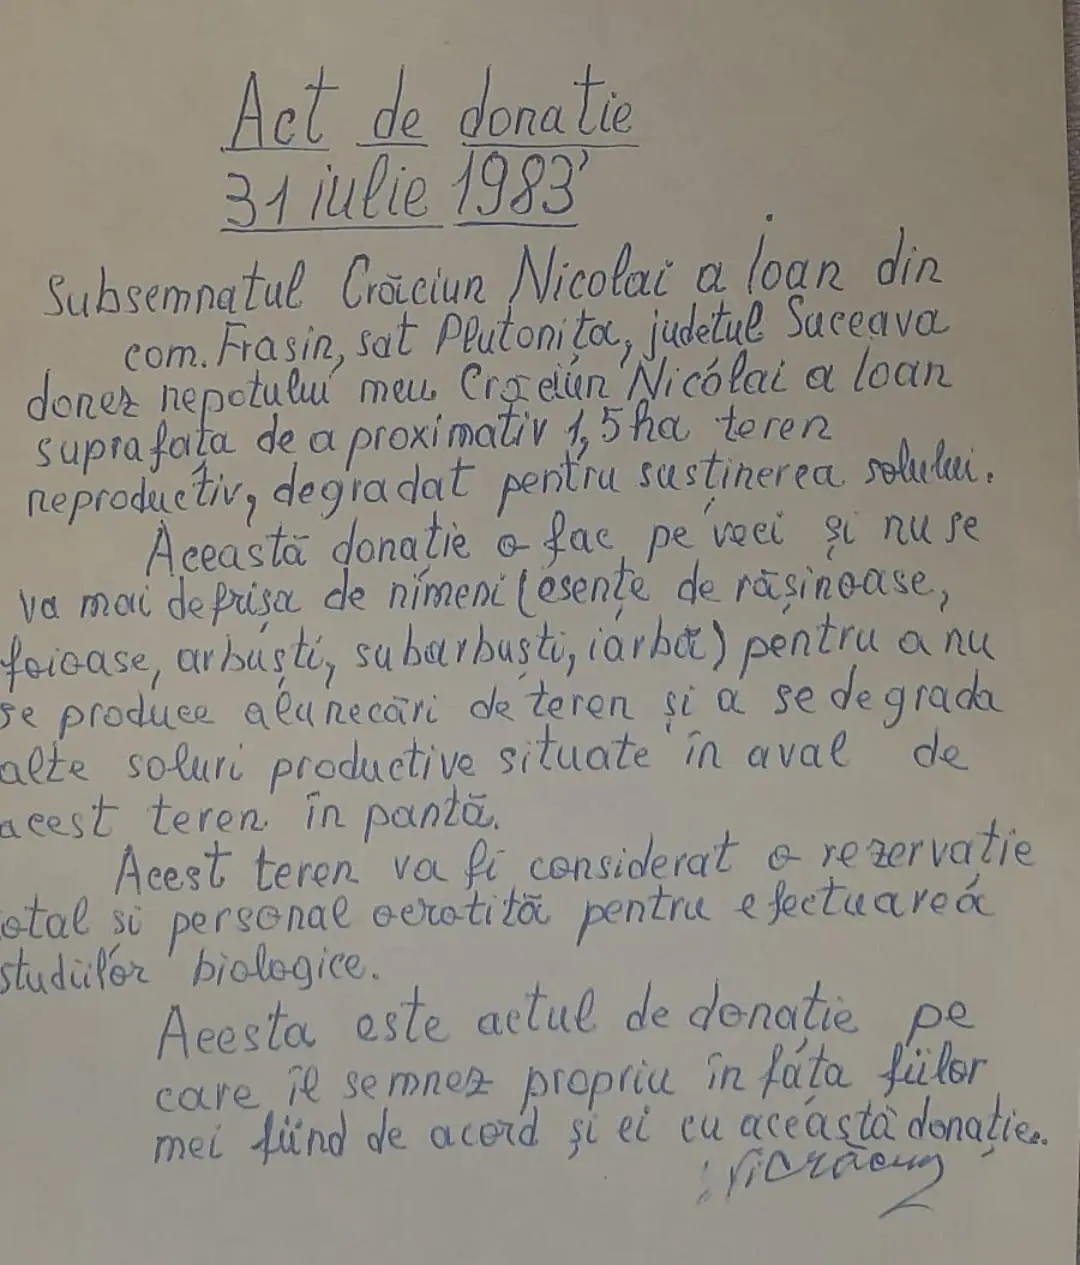 Act de donatie
31 iulie 1983
Subsemnatul Crăciun Nicolai a Ioan din
com. Frasin, sat Plutonița, judetul Suceava
donez nepotului meu Crăciun Nicolai a Ioan
suprafața de aproximativ 1,5 ha teren
neproductiv, degradat pentru susținerea solului.
Această donație o fac pe veci și nu se
va mai defrișa de nimeni (esențe de rășinoase,
foioase, arbuști, subarbuști, iarbă) pentru a nu
se produce alunecări de teren și a se degrada
alte soluri productive situate în aval de
acest teren în pantă.
Acest teren va fi considerat o rezervație
otal si personal ocrotită pentru efectuarea
studiilor biologice.
Acesta este actul de donație pe
care îl semnez propriu în fața fiilor
mei fiind de acord și ei cu această donație.